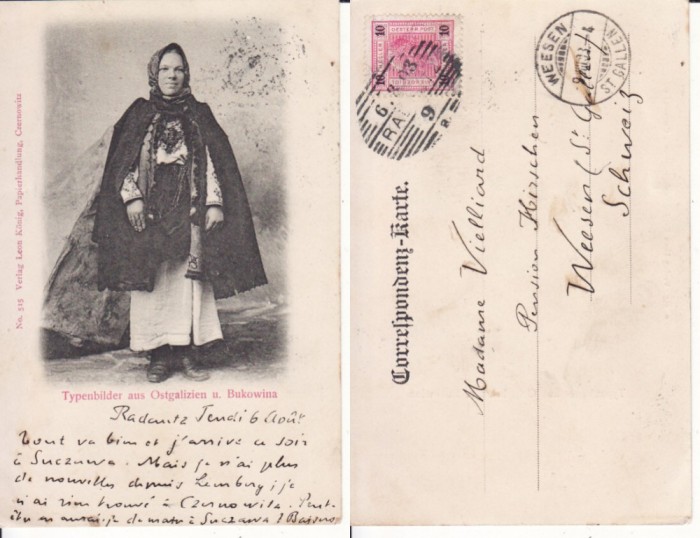 No. 515 Verlag Leon König, Papierhandlung, Czernowitz
Typenbilder aus Ostgalizien u. Bukowina
Radautz Jeudi 6 Août
Tout va bien et j'arrive ce soir
à Suczawa. Mais je n'ai plus
de nouvelles depuis Lemberg; je
n'ai rien trouvé à Czernowitz. Peut-
être en aurai-je demain à Suczawa ? Baisers
10 OESTERR. POST 10
10 10
6 9
RA
WEESEN
ST GALLEN
Correspondenz-Karte.
Madame Vielliard
Pension Hirschen
Weesen (St Gall
Schweiz